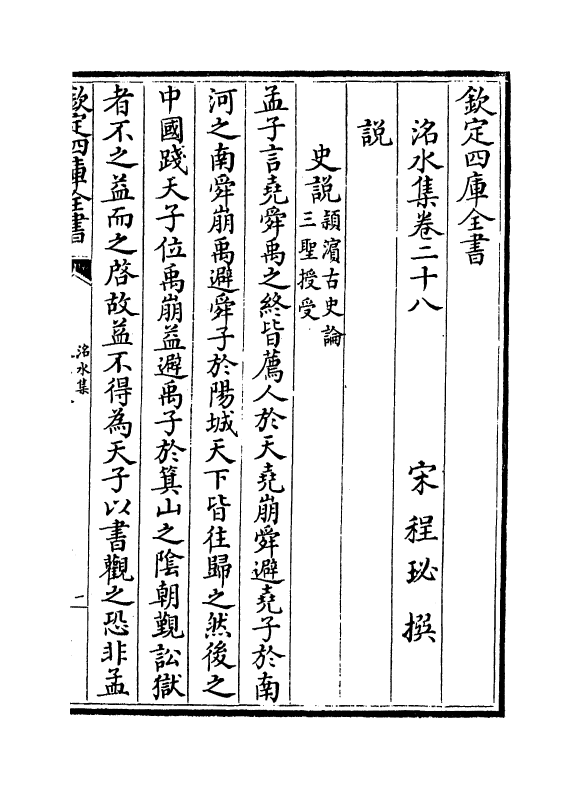 欽定四庫全書
洺水集卷二十八
宋程珌撰
説
史説潁濵古史論三聖授受
孟子言堯舜禹之終皆薦人於天堯崩舜避堯子於南
河之南舜崩禹避舜子於陽城天下皆往歸之然後之
中國踐天子位禹崩益避禹子於箕山之陰朝覲訟獄
者不之益而之啓故益不得為天子以書觀之恐非孟
欽定四庫全書
洺水集
一